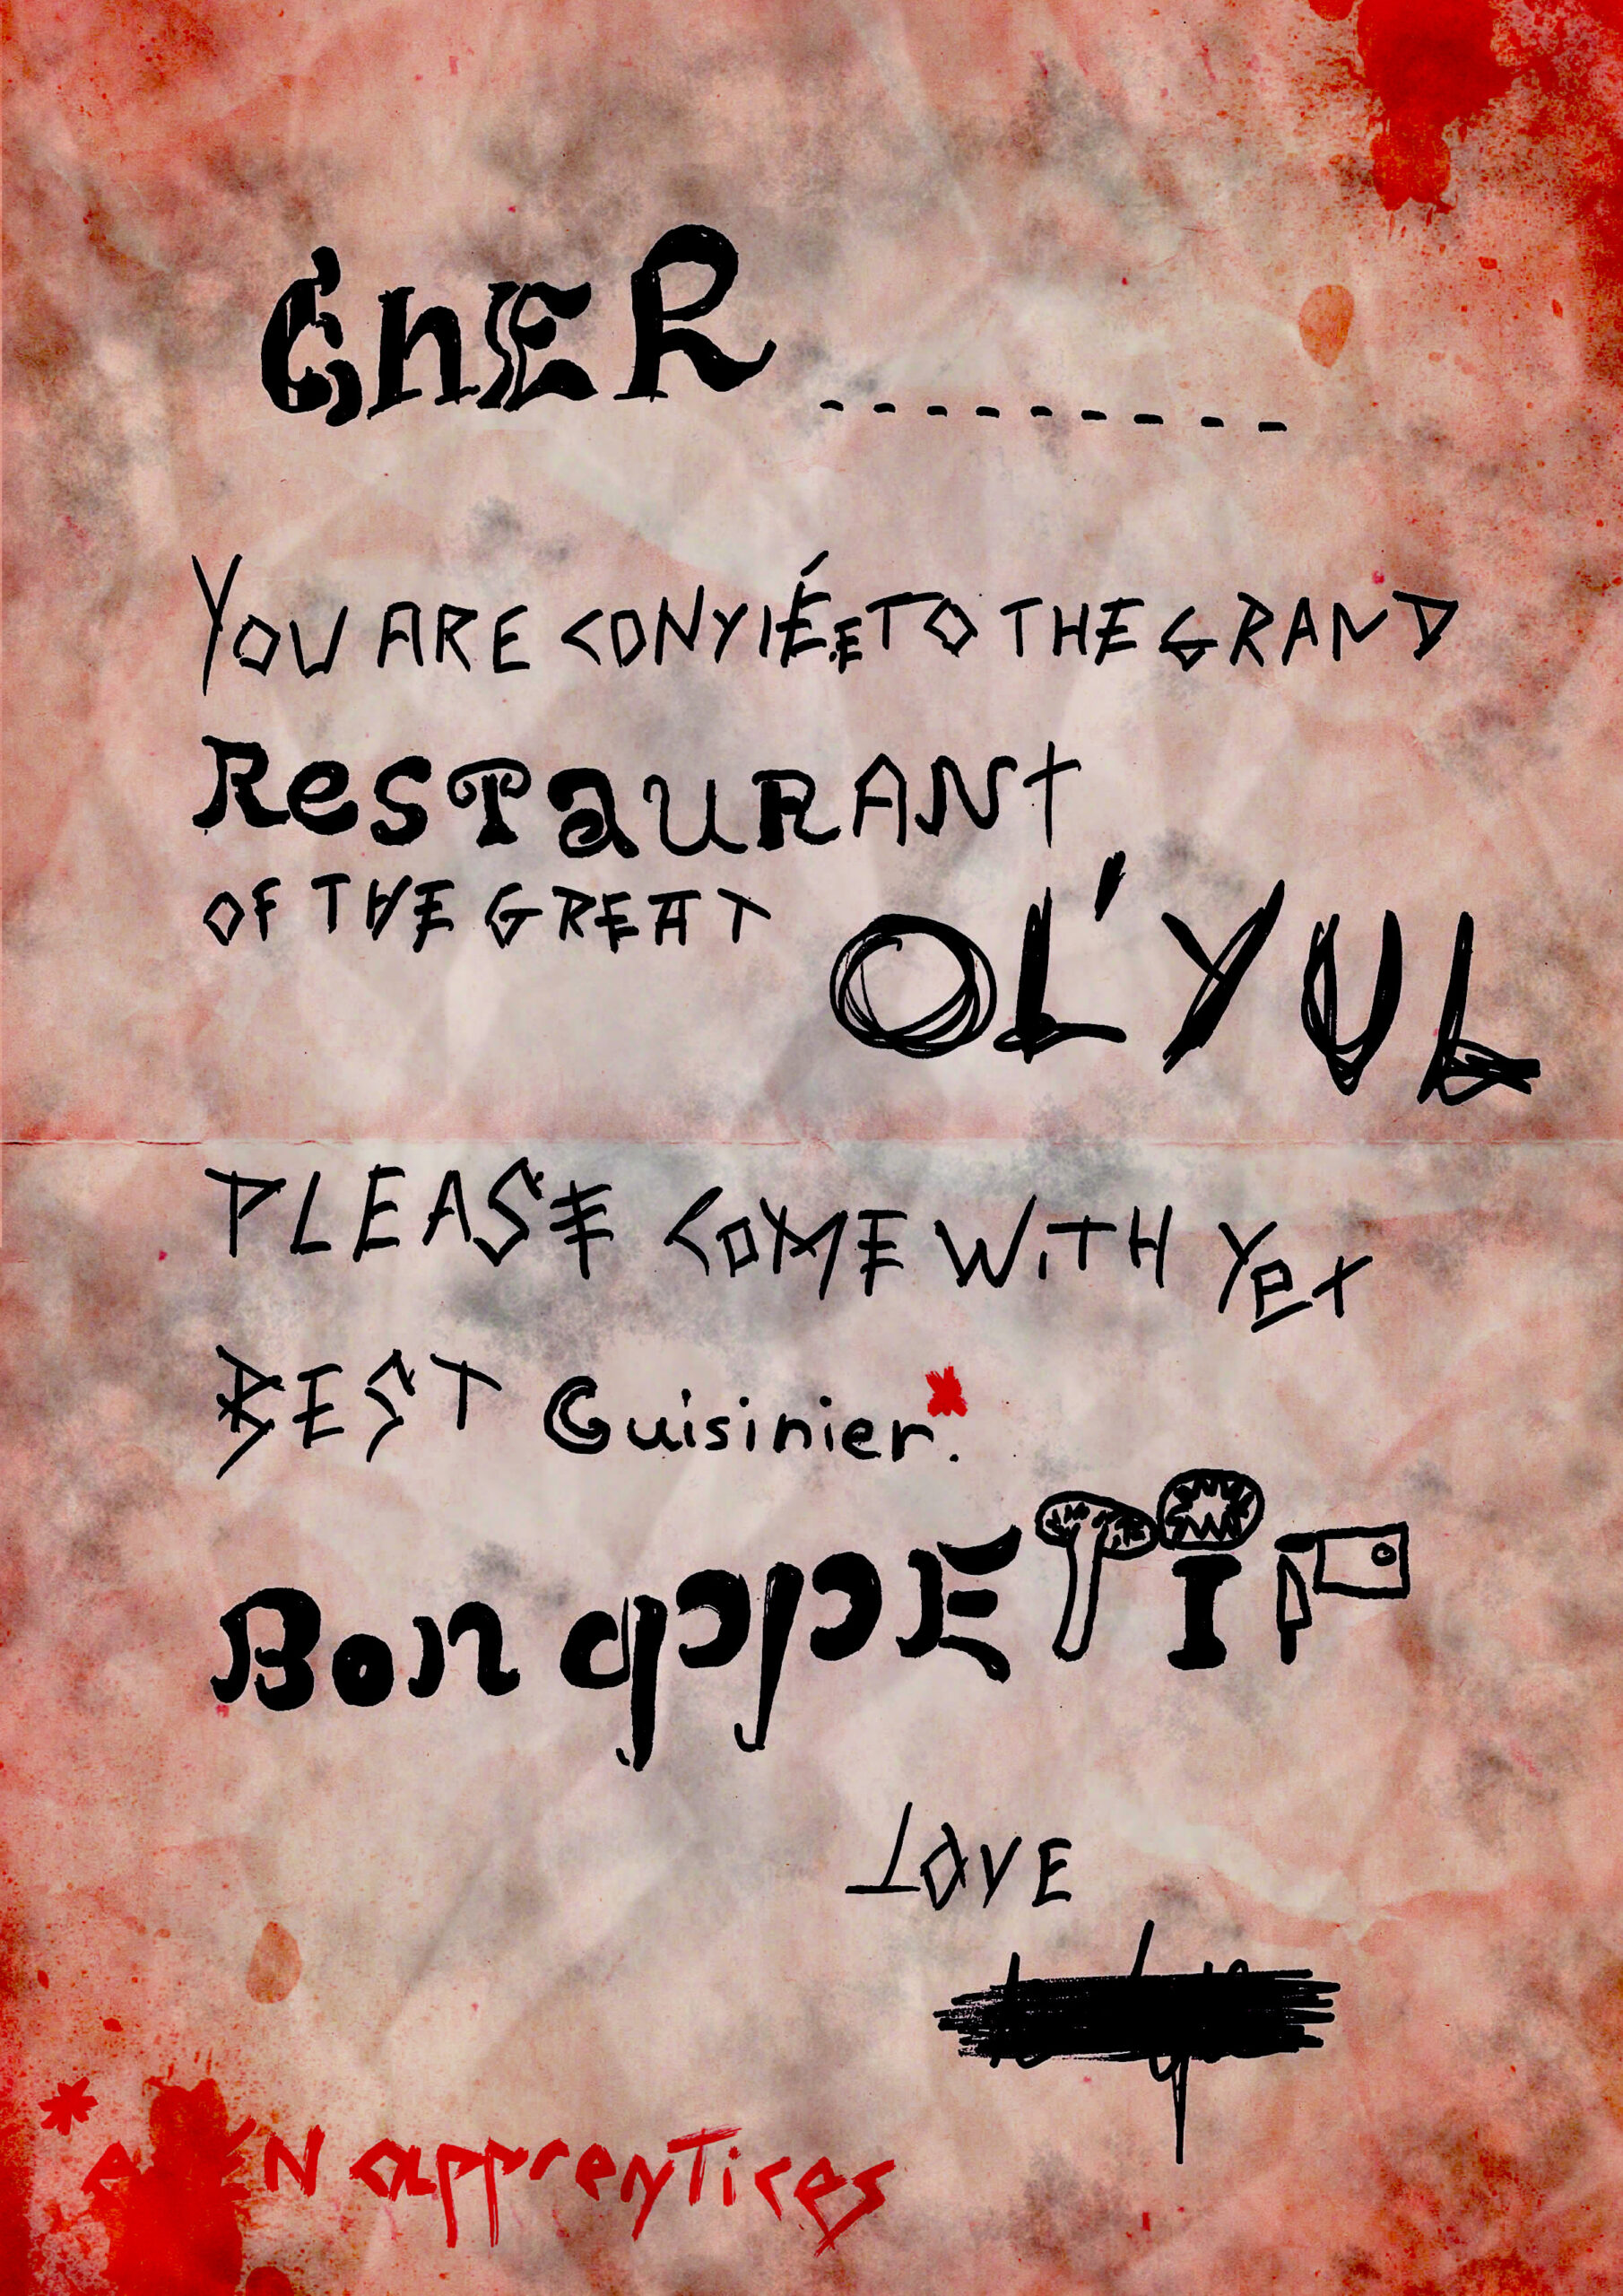 CHER ----------
YOU ARE CONVIÉ.E TO THE GRAND
RESTAURANT
OF THE GREAT OL'YUL
PLEASE COME WITH YER
BEST Cuisinier*.
BON APPETIT
LOVE
*EVEN apprentices